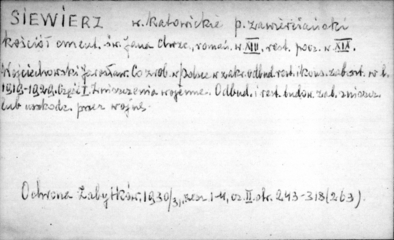 SIEWIERZ w. katowickie p. zawierciański
kościół cment. św. Jana Chrzc., romań. w XII. rest. pocz. w XIX.
Wojciechowski Jarosław. Co zrob. w Polsce w zakr. odbud. rest. i kons. zab. art. w l.
1919-1929. Część I. Zniszczenia wojenne. Odbud. i rest. budow. zab. zniszcz.
lub uszkodz. przez wojnę.
Ochrona Zabytków. 1930/31, zesz. 1-4, cz. II. str. 243-318 (263).